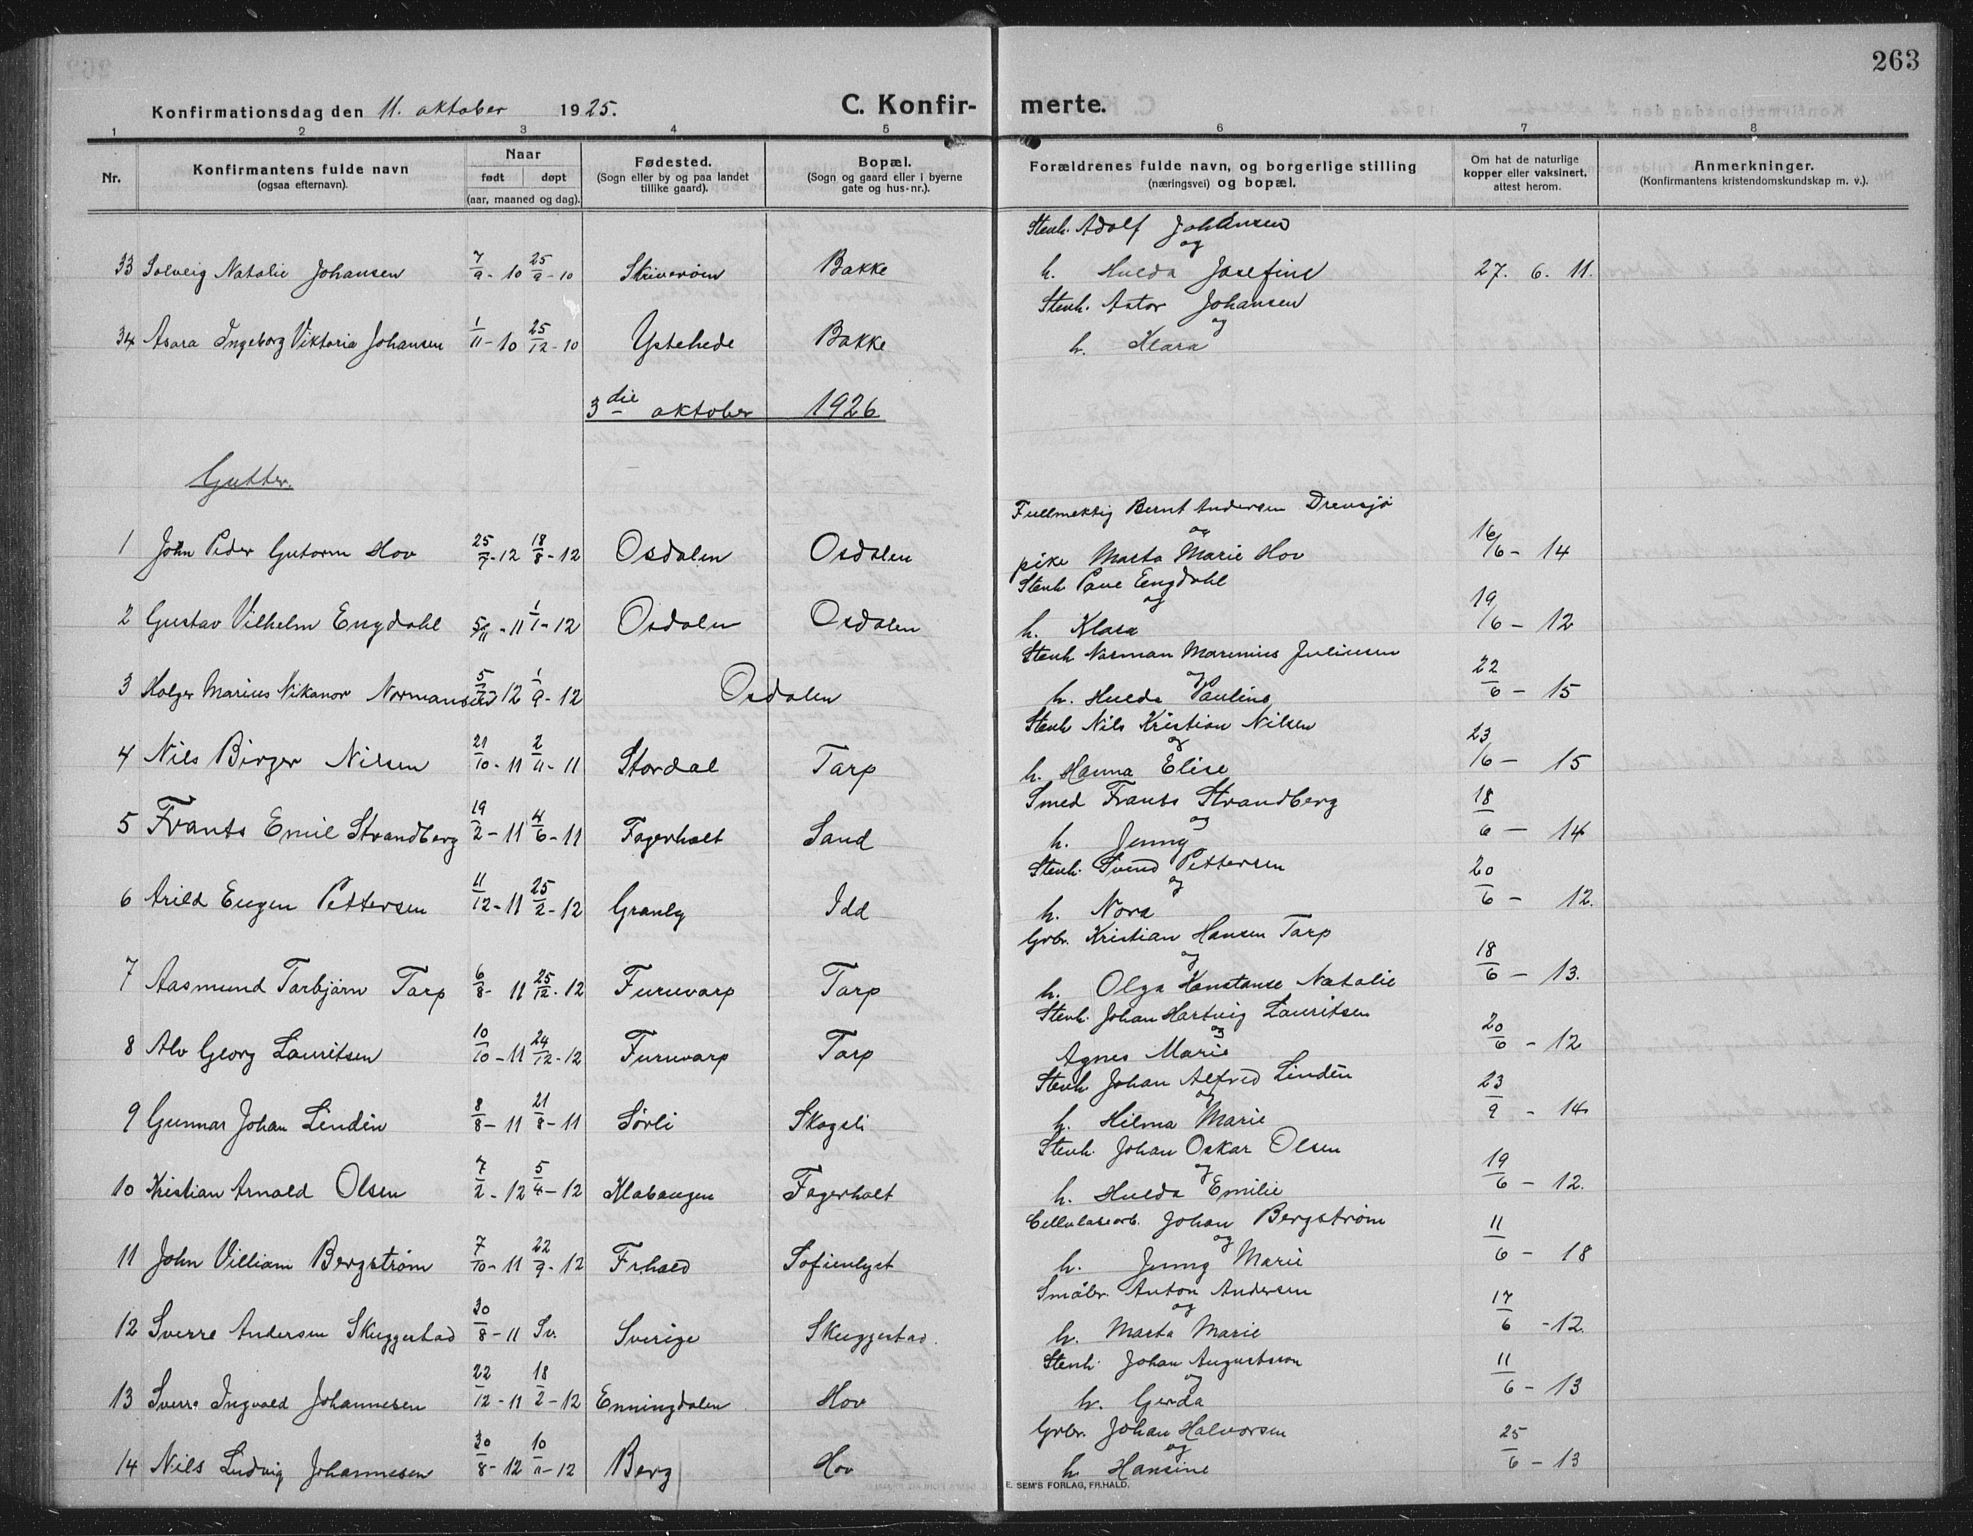 263
Konfirmationsdag den 11. oktober 1925.
C. Konfir- merte.
1 2 3 4 5 6 7 8
Nr.
Konfirmantens fulde navn
(ogsaa efternavn).
Naar
født døpt
(aar, maaned og dag).
Fødested.
(Sogn eller by og paa landet
tillike gaard).
Bopæl.
(Sogn og gaard eller i byerne
gate og hus-nr.).
Forældrenes fulde navn, og borgerlige stilling
(næringsvei) og bopæl.
Om hat de naturlige
kopper eller vaksinert,
attest herom.
Anmerkninger.
(Konfirmantens kristendomskundskap m. v.).
Stenh. Adolf Johansen
og
33 Solveig Natalie Johansen 7/9-10 25/9-10 Skriverøen Bakke h. Hulda Josefine 27. 6. 11.
Stenh. Astor Johansen
og
34 Asora Ingeborg Viktoria Johansen 1/11-10 25/12-10 Ystehede Bakke h. Klara
3die oktober 1926
Gutter.
Fullmektig Bernt Andersen Drevsjø
og
1 John Peder Gutorm Hov 25/7-12 18/8-12 Osdalen Osdalen pike Marta Marie Hov 16/6-14
Stenh Paue Engdahl
og
2 Gustav Vilhelm Engdahl 5/11-11 1/1-12 Osdalen Osdalen h. Klara 19/6-12
Stenh Norman Marenius Juliusen
og
3 Holger Marius Nikanor Normansen 5/7 12 1/9-12 Osdalen h. Hulda Pauline 22/6-15
Stenh Nils Kristian Nilsen
og
4 Nils Birger Nilsen 21/10-11 2/11-11 Stordal Tarp h. Hanna Elise 23/6-15
Smed Frants Strandberg
og
5 Frants Emil Strandberg 19/2-11 4/6-11 Fagerholt Sand h. Jenny 18/6-14
Stenh. Svend Pettersen
og
6 Arild Eugen Pettersen 11/12-11 25/2-12 Granly Idd h. Nora 20/6-12.
Grbr. Kristian Hansen Tarp
og
7 Aasmund Torbjørn Tarp 6/8-11 25/12-12 Furuvarp Tarp h. Olga Konstanse Natalie 18/6-13.
Stenh. Johan Hartvig Lauritsen
og
8 Alv Georg Lauritsen 10/10-11 24/12-12 Furuvarp Tarp Agnes Marie 20/6-12
Stenh. Johan Alfred Lindén
og
9 Gunnar Johan Lindén 8/8-11 21/8-11 Sørli Skogsli h. Hilma Marie 23/9-14
Stenh. Johan Oskar Olsen
og
10 Kristian Arnold Olsen 7/2-12 5/4-12 Klabaugen Fagerholt h. Hulda Emilie 19/6-12.
Cellulosearb. Johan Bergstrøm
og
11 John Villiam Bergstrøm 7/10-11 22/9-12 Fr.hald Sofienlyst h. Jenny Marie 11/6-18
Småbr. Anton Andersen
og
12 Sverre Andersen Skuggestad 30/8-11 Sv. Sverige Skuggestad. h. Marta Marie 17/6-12.
Stenh. Johan Augustsson
og
13 Sverre Ingvald Johannesen 22/12-11 18/2-12 Enningdalen Hov h. Gerda 11/6-13
Grbr. Johan Halvorsen
og
14 Nils Ludvig Johannesen 30/8-12 10/11-12 Berg Hov h. Hansine 25/6-13
E. SEM'S FORLAG, FR.HALD.